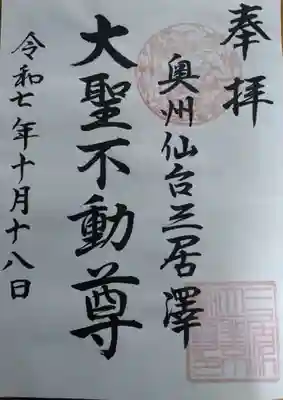 奉拝
奥州仙台三居澤
大聖不動尊
令和七年十月十八日